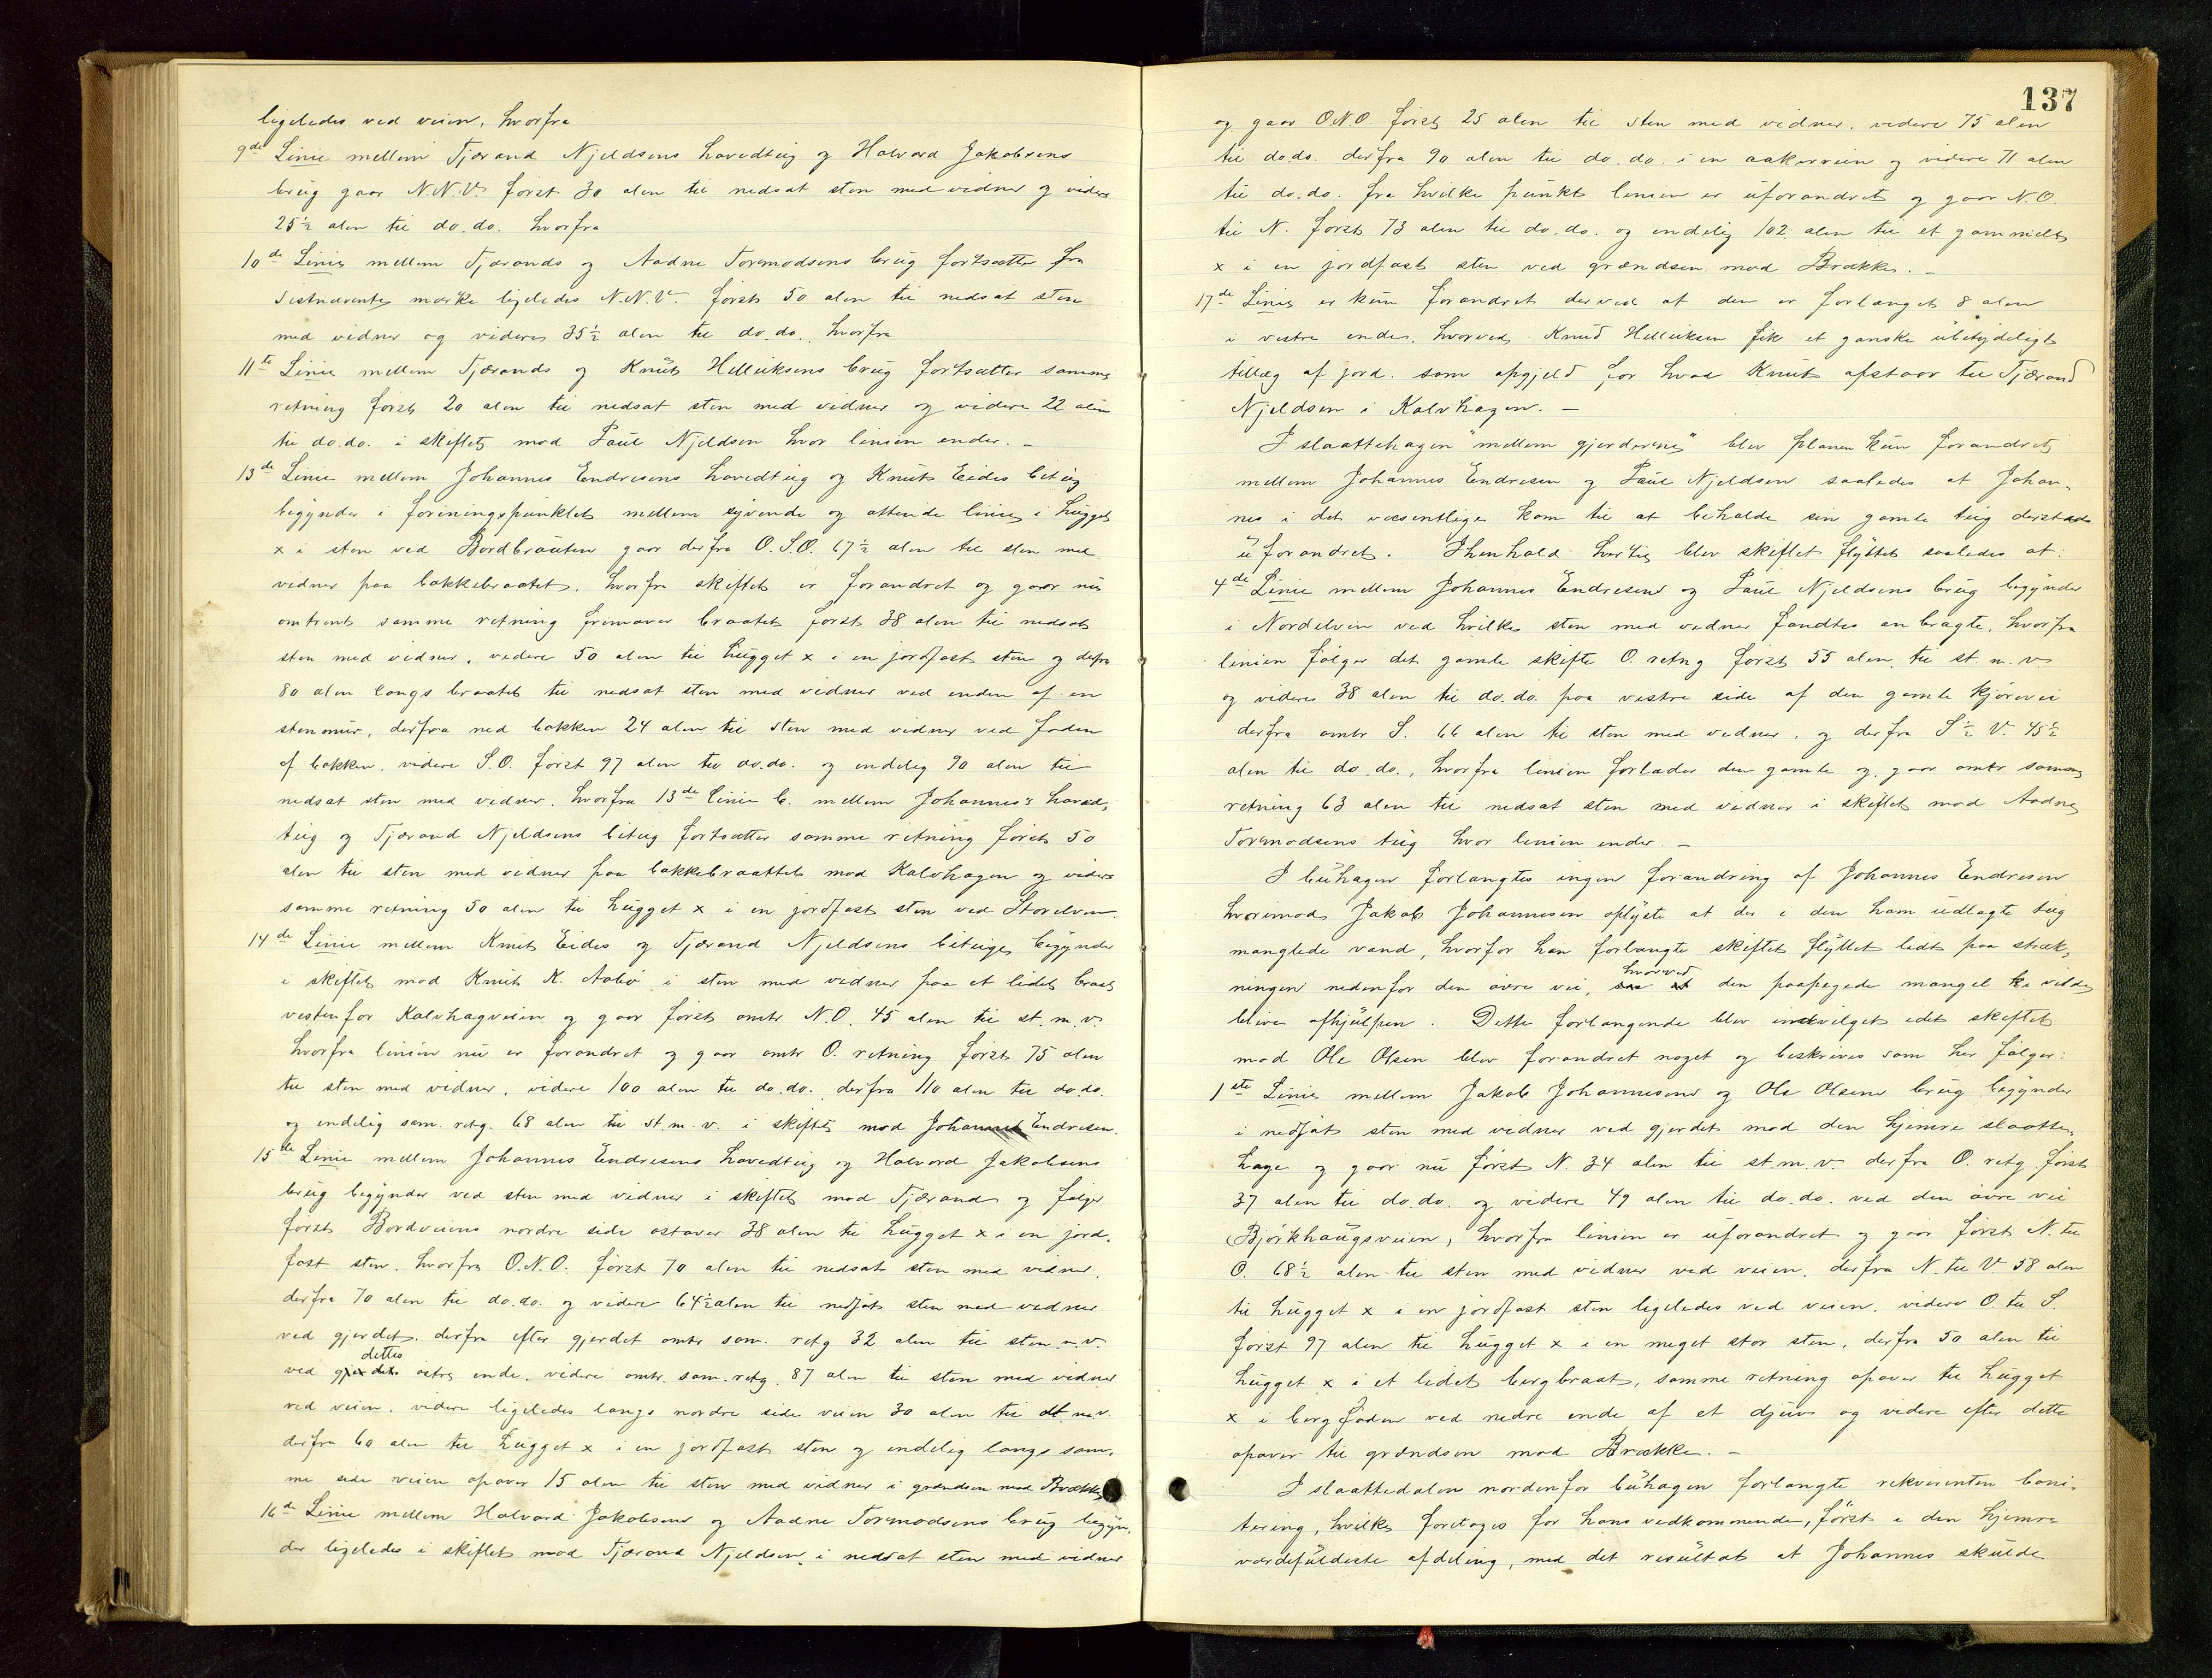 ligeledes ved veien, hvorfra
9de Linie mellem Tjærand Njeldsens hovedteig og Halvard Jakobsens
brug gaar N.N.V. først 30 alen til nedsat sten med vidner og videre
25½ alen til do.do. hvorfra
10de Linie mellem Tjærands og Aadne Tormodsens brug fortsætter fra
sistnævnte mærke ligeledes N.N.V. først 50 alen til nedsat sten
med vidner og videre 35½ alen til do.do., hvorfra
11te Linie mellem Tjærands og Knut Helliksens brug fortsætter samme
retning først 20 alen til nedsat sten med vidner og videre 22 alen
til do.do. i skiftet mod Paul Njeldsen hvor linien ender. –
13de Linie mellem Johannes Endresens hovedteig og Knut Eides biteig
begynder i foreningspunktet mellem syvende og ottende linie i hugget
x i sten ved Bordbrauten gaar derfra O.S.O. 67½ alen til sten med
vidner paa bakkebraatet, hvorfra skiftet er forandret og gaar nu
omtrent samme retning fremover braatet først 38 alen til nedsat
sten med vidner, videre 50 alen til hugget x i en jordfast sten og derfra
80 alen langs braatet til nedsat sten med vidner ved enden af en
stenmur, derfra ned bakken 24 alen til sten med vidner ved foden
af bakken, videre S.O. først 97 alen til do.do. og endelig 90 alen til
nedsat sten med vidner, hvorfra 13de Linie b. mellem Johannes's hoved-
teig og Tjærand Njeldsens biteig fortsætter samme retning først 50
alen til sten med vidner paa bakkebraattet mod Kalvhagen og videre
samme retning 50 alen til hugget x i en jordfast sten ved Storelven.
14de Linie mellem Knut Eides og Tjærand Njeldsens biteige begynder
i skiftet mod Knut K. Aabø i sten med vidner paa et lidet braat
vestenfor Kalvhagveien og gaar først omtr N.O. 45 alen til st.m.v.
hvorfra linien nu er forandret og gaar omtr O. retning først 75 alen
til sten med vidner, videre 100 alen til do.do. derfra 110 alen til do.do.
og endelig sam. retg. 68 alen til st.m.v. i skiftet mod Johannes Endresen.
15de Linie mellem Johannes Endresens hovedteig og Halvard Jakobsens
brug begynder ved sten med vidner i skiftet mod Tjærand og følger
først Bordveiens nordre side ostover 38 alen til hugget x i en jord-
fast sten, hvorfra O.N.O. først 70 alen til nedsat sten med vidner,
derfra 70 alen til do.do. og videre 64½ alen til nedsat sten med vidner
ved gjerdet, derfra efter gjerdet omtr sam. retg 32 alen til sten m.v.
ved dettes østre ende, videre omtr. sam. retg. 87 alen til sten med vidner
ved veien, videre ligeledes langs nordre side veien 30 alen til st m.v.
derfra 60 alen til hugget x i en jordfast sten og endelig langs sam-
me side veien opover 15 alen til sten med vidner i grændsen mod Brække
16de Linie mellem Halvard Jakobsens og Aadne Tormodsens brug begyn-
der ligeledes i skiftet mod Tjærand Njeldsen i nedsat sten med vidner
137
og gaar O.N.O. først 25 alen til sten med vidner, videre 75 alen
til do.do. derfra 90 alen til do.do. i en aakerrein og videre 71 alen
til do.do. fra hvilke punkt linien er uforandret og gaar N.O.
til N. først 73 alen til do.do. og endelig 102 alen til et gammelt
x i en jordfast sten ved grændsen mod Brække. –
17de Linie er kun forandret derved at den er forlænget 8 alen
i vestre ende, hvorved Knud Helliksen fik et ganske ubetydeligt
tillæg af jord som opgjeld for hvad Knut afstaar til Tjærand
Njeldsen i Kalvhagen. –
I slaattehagen "mellem gjerderne" blev planen kun forandret
mellem Johannes Endresen og Paul Njeldsen saaledes at Johan-
nes i det væsentlige kom til at beholde sin gamle teig dersteds
uforandret. I henhold hertil blev skiftet flyttet saaledes at:
4de Linie mellem Johannes Endresens og Paul Njeldsens brug begynder
i Nordelven ved hvilke sten med vidner fandtes anbragte, hvorfra
linien følger det gamle skifte O. retng først 55 alen til st.m.v.
og videre 38 alen til do.do. paa vestre side af den gamle kjørevei
derfra omtr S. 66 alen til sten med vidner, og derfra S½V. 45½
alen til do.do., hvorfra linien forlader den gamle og gaar omtr samme
retning 63 alen til nedsat sten med vidner i skiftet mod Aadne
Tormodsens teig hvor linien ender. –
I buhagen forlangtes ingen forandring af Johannes Endresen
hvorimod Jakob Johannesen oplyste at der i den ham udlagte teig
manglede vand, hvorfor han forlangte skiftet flyttet lidt paa stræk-
ningen nedenfor den øvre vei, hvorved den paapegede mangel vilde
blive afhjulpen. Dette forlangende blev indvilget idet skiftet
mod Ole Olsen blev forandret noget og beskrives som her følger:
1ste Linie mellem Jakob Johannesens og Ole Olsens brug begynder
i nedsat sten med vidner ved gjerdet mod den hjemre slaatte-
hage og gaar nu først N. 34 alen til st.m.v. derfra O. retg først
37 alen til do.do. og videre 49 alen til do.do. ved den øvre vei
(Bjørkhaugsveien, hvorfra linien er uforandret og gaar først N. til
O. 68½ alen til sten med vidner ved veien, derfra N. til V. 58 alen
til hugget x i en jordfast sten ligeledes ved veien, videre O. til S.
først 97 alen til hugget x i en meget stor sten, derfra 50 alen til
hugget x i et lidet bergbraat, samme retning opover til hugget
x i bergfoden ved nedre ende af et djuv og videre efter dette
opover til grændsen mod Brække. –
I slaattedalen nordenfor buhagen forlangte rekvirenten boni-
tering, hvilke foretoges for hans vedkommende, først i den hjemre
værdifuldeste afdeling, med det resultat at Johannes skulde